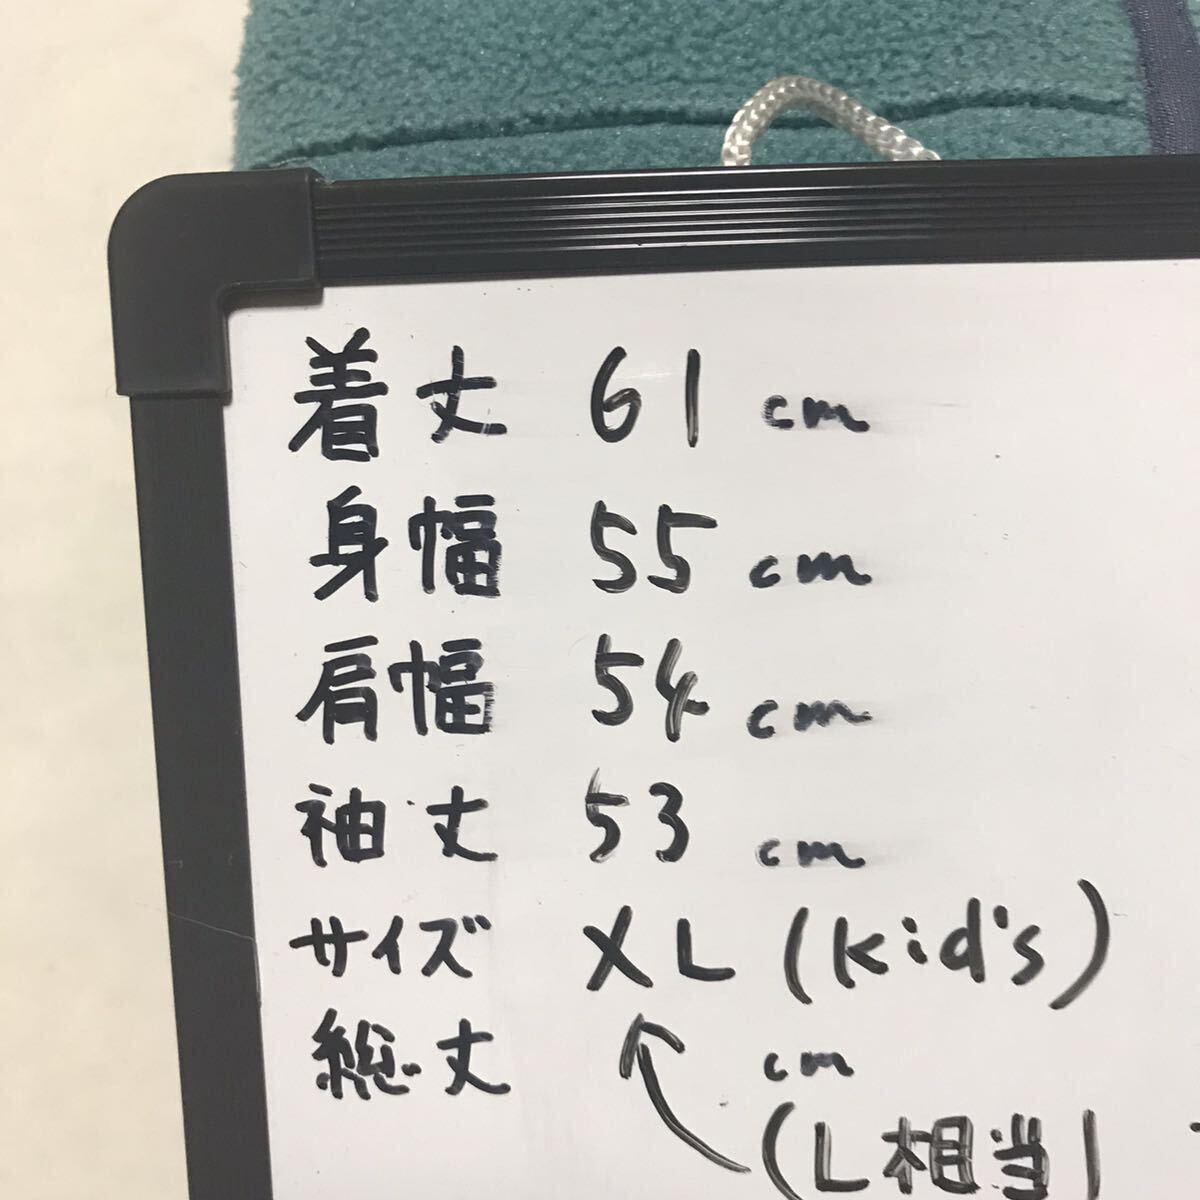 着丈 61 cm
身幅 55 cm
肩幅 54 cm
袖丈 53 cm
サイズ XL (kid's)
総丈 cm
(L相当)